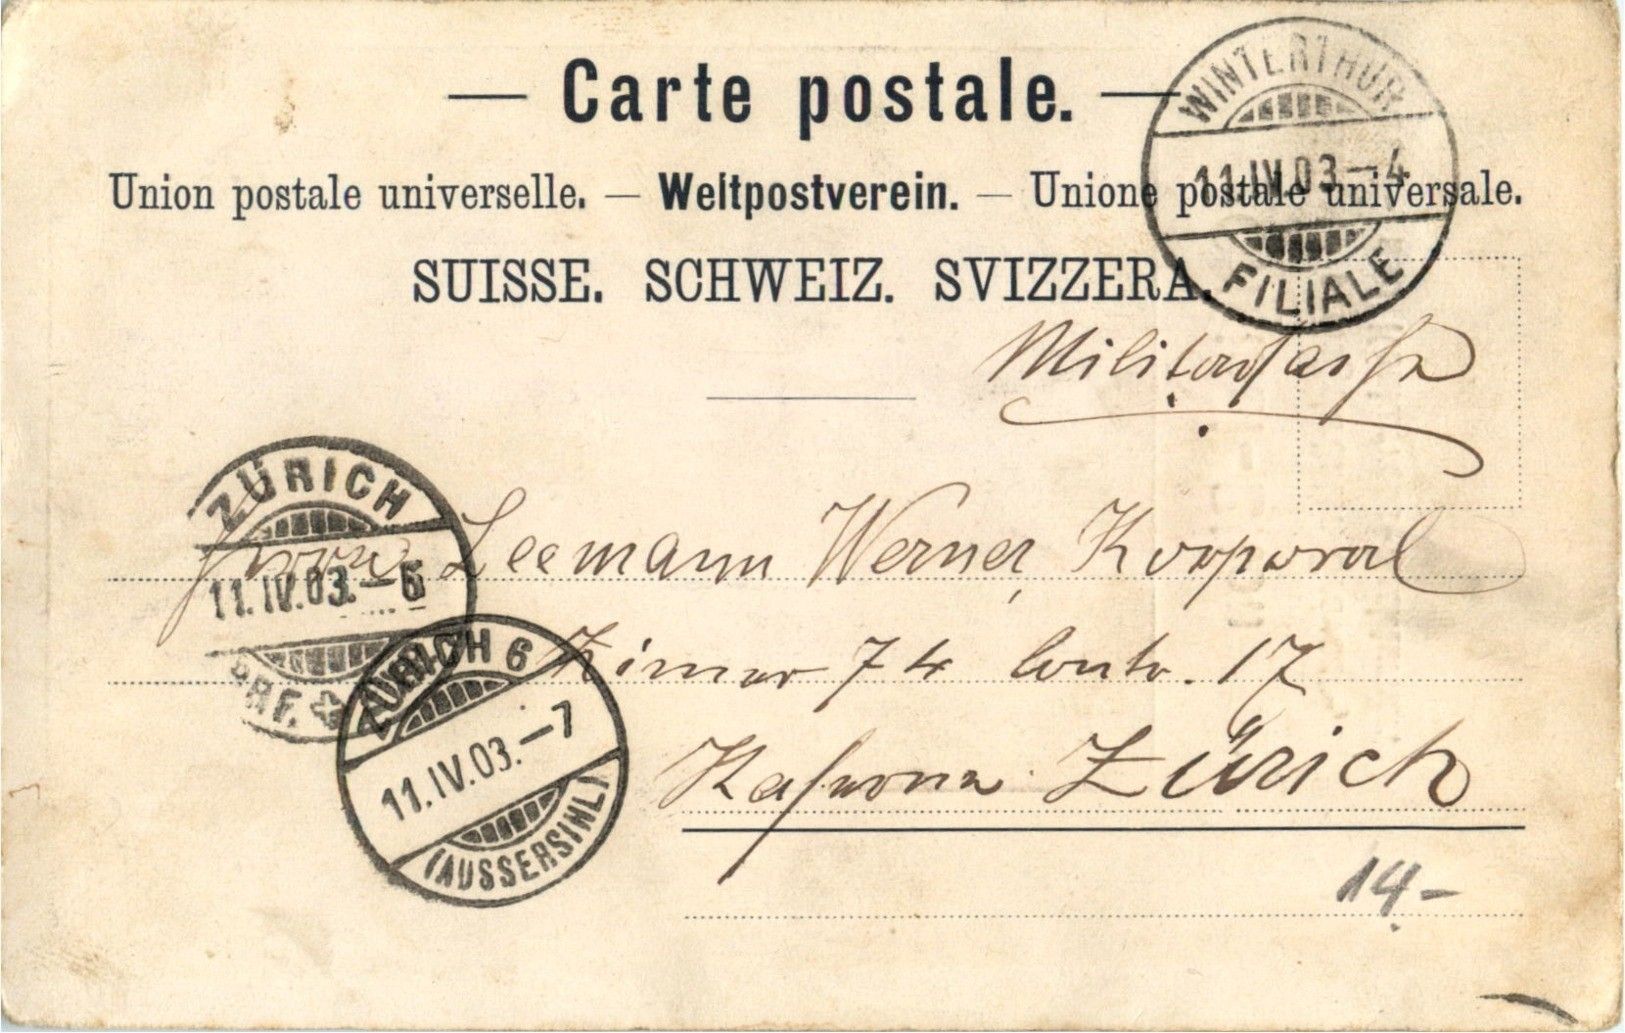 — Carte postale. —
Union postale universelle. — Weltpostverein. — Unione postale universale.
SUISSE. SCHWEIZ. SVIZZERA.
WINTERTHUR
11.IV.03—4
FILIALE
Militärsache
ZÜRICH
11.IV.03.—6
BRF.
Herrn Leemann Werner, Korporal
Zimer 74
17
Kaserne Zürich
ZÜRICH 6
11.IV.03.—7
(AUSSERSIHL)
14-